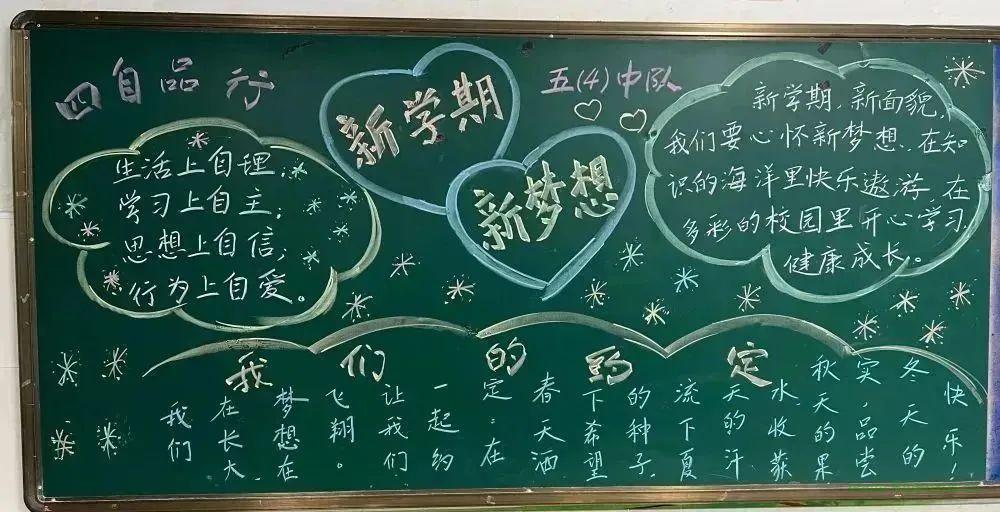 四自品行
生活上自理;
学习上自主;
思想上自信;
行为上自爱。
新学期
新梦想
五(4)中队
新学期、新面貌,
我们要心怀新梦想、在知
识的海洋里快乐遨游、在
多彩的校园里开心学习,
健康成长。
我们的约定
我们
在长大,
梦想在
飞翔。
让我们
一起约
定:在
春天洒
下希望
的种子,
流下夏
天的汗
水收获
秋天的果
实,品尝
冬天的
快乐!